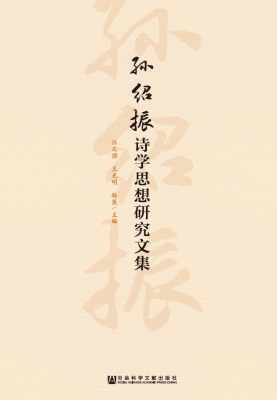 孙绍振
孙绍振诗学思想研究文集
汪文顶 王光明 骆英/主编
社会科学文献出版社
SOCIAL SCIENCES ACADEMIC PRESS (CHINA)